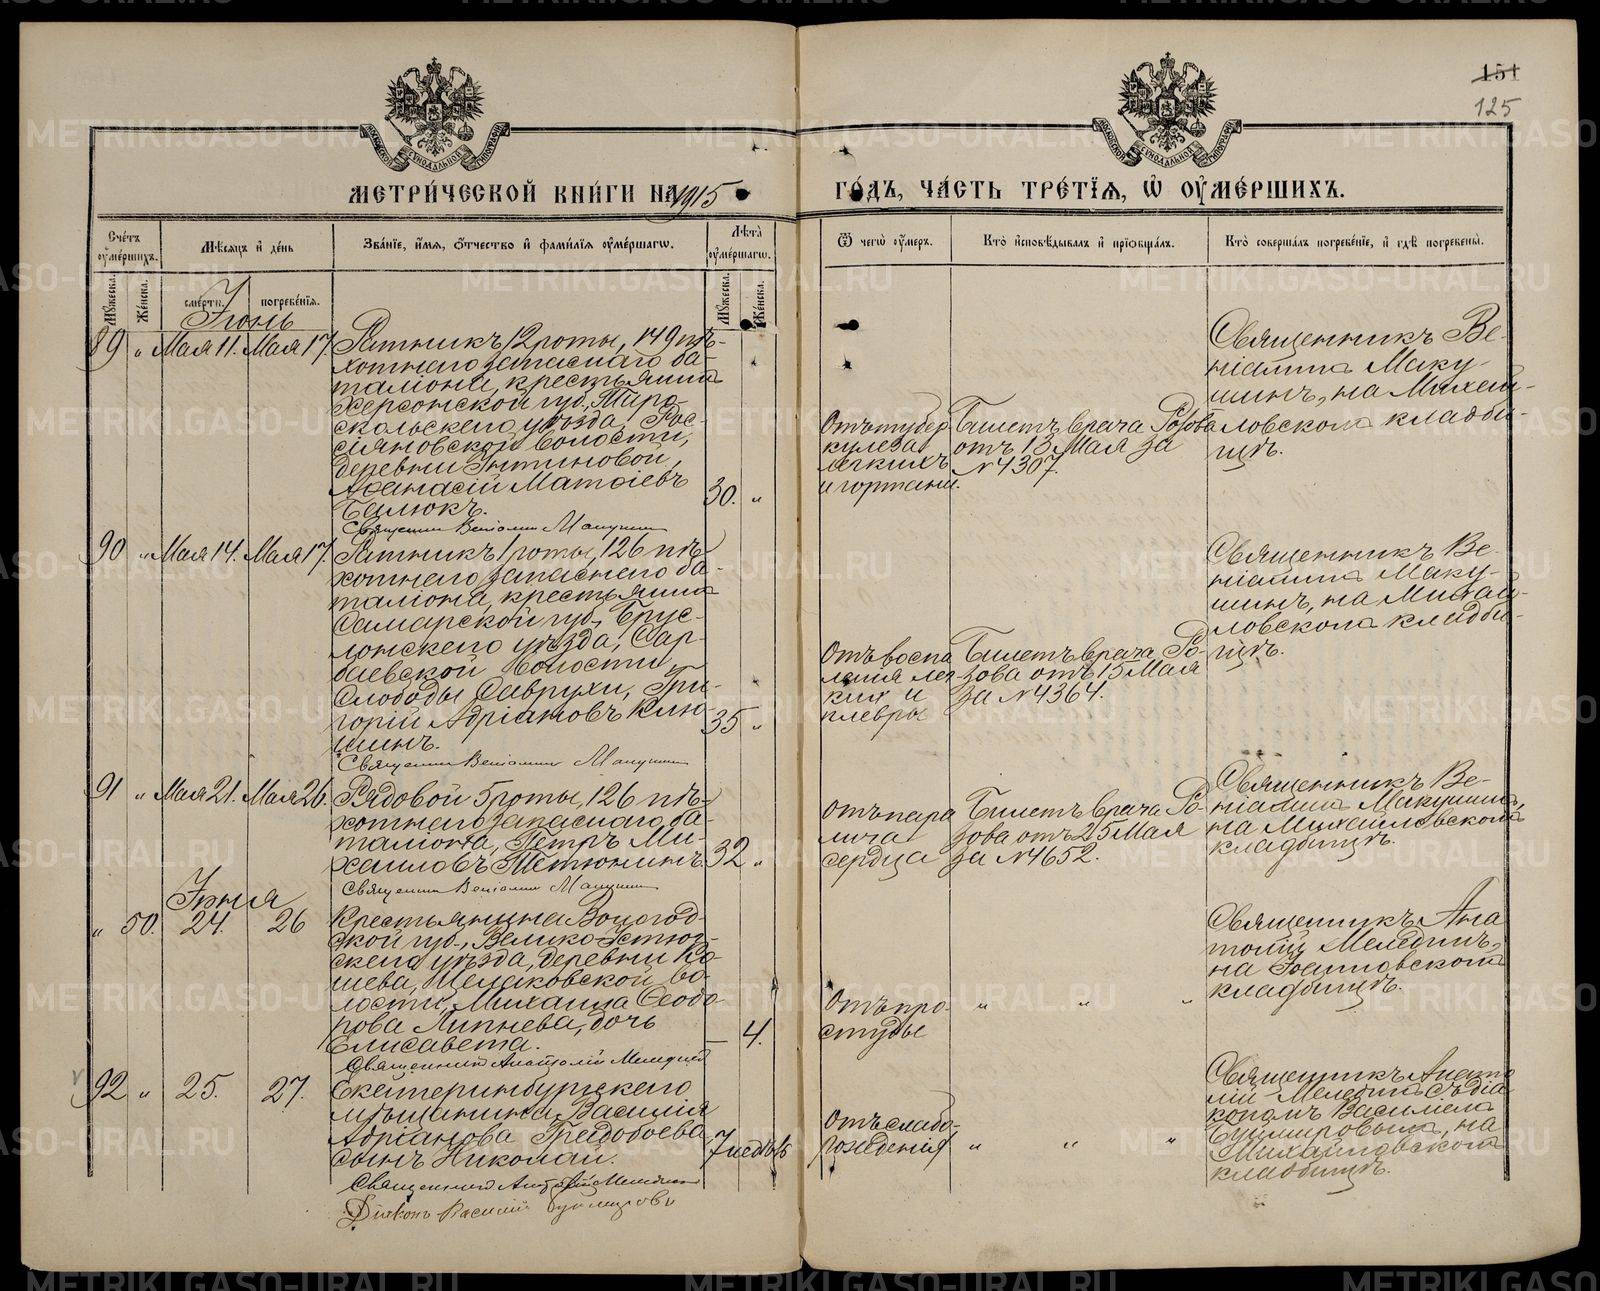 151
125
МЕТРИ́ЧЕСКОЙ КНИ́ГИ НА 1915
ГО́ДЪ, ЧА́СТЬ ТРЕ́ТЇѦ, Ѡ҆ ОУ҆МЕ́РШИХЪ.
Сче́тъ оу҆ме́ршихъ.
Мѣ́сѧцъ и҆ де́нь
Зва́нїе, и҆́мѧ, ѻ҆́тчество и҆ фами́лїѧ оу҆ме́ршагѡ.
Лѣ́та оу҆ме́ршагѡ.
Ѿ чегѡ̀ оу҆́меръ.
Кто̀ и҆сповѣ́дывалъ и҆ прїѡбща́лъ.
Кто̀ соверша́лъ погребе́нїе, и҆ гдѣ̀ погребены̀.
Мꙋ́жеска.
Же́нска.
сме́рти.
погребе́нїя.
Мꙋ́жеска.
Же́нска.
Іюнь
89 „ Мая 11. Мая 17.
Ратникъ 12 роты, 149 пѣ-
хотнаго запаснаго ба-
таліона, крестьянинъ
Херсонской губ., Тира-
спольскаго уѣзда, Рос-
сіяновской волости,
деревни
Аѳанасій Матѳіевъ
Балюкъ.
30. „
Священникъ Веніаминъ Макушинъ
Отъ тубер
кулеза
легкихъ
и гортани.
Билетъ врача Розова
отъ 13 Мая за
№ 4307.
Священникъ Ве-
ніаминъ Маку-
шинъ, на Михай-
ловскомъ кладби-
щѣ.
90 „ Мая 14. Мая 17.
Ратникъ 1 роты, 126 пѣ-
хотнаго запаснаго ба-
таліона, крестьянинъ
Самарской губ., Бугус-
лонскаго уѣзда, Сар-
баевской волости,
Слободы Саврухи, Гри-
горій Адріановъ Клю-
шинъ.
35 „
Священникъ Веніаминъ Макушинъ
Отъ воспа
ленія лег-
кихъ и
плевры
Билетъ врача Ро-
зова отъ 15 Мая
за № 4364.
Священникъ Ве-
ніаминъ Маку-
шинъ, на Михай-
ловскомъ кладби-
щѣ.
91 „ Мая 21. Мая 26.
Рядовой 5 роты, 126 пѣ-
хотнаго запаснаго ба-
таліона, Петръ Ми-
хаиловъ Тетюнинъ.
32 „
Священникъ Веніаминъ Макушинъ
Отъ пара
лича
сердца
Билетъ врача Ро-
зова отъ 25 Мая
за № 4652.
Священникъ Ве-
ніаминъ Макушинъ,
на Михайловскомъ
кладбищѣ.
Іюня
„ 50. 24. 26
Крестьянина Вологод-
ской губ., Велико-Устюг-
скаго уѣзда, деревни Ко-
шева, волости, Михаила Ѳеодо-
рова Липнева, дочь
Елисавета.
— 4.
Священникъ Анатолій Мелединъ
Отъ про-
студы
„ „ „
Священникъ Ана
толій Мелединъ,
на Іоанновскомъ
кладбищѣ.
92 „ 25. 27.
Екатеринбургскаго
мѣщанина Василія
Адріанова Градобоева,
сынъ Николай.
7 недѣль
Священникъ Анатолій Мелединъ
Діаконъ Василій
Отъ слабо-
рожденія
„ „ „
Священникъ Анато
лій Мелединъ съ діа
кономъ Василіемъ
на
Михайловскомъ
кладбищѣ.
METRIKI.GASO-URAL.RU